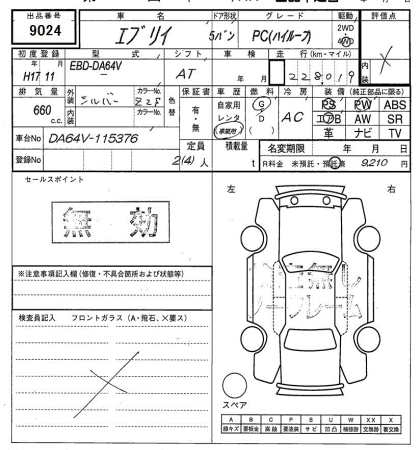 出品番号 車名 ドア形状 グレード 駆動 評価点
9024 エブリイ 5バン PC(ハイルーフ) 2WD 4WD
初度登録 型式 シフト 車検 走行(km・マイル) 内装
年 月 EBD-DA64V
H17 11 - AT 年 月 228,019
排気量 外装 カラーNo. 色替 保証書 車歴 燃料 冷房 装備(純正部品に限る)
660 c.c. シルバー Z2S 有・無 自家用 レンタ 事業用 G D AC PS PW ABS
内装 カラーNo. エアB AW SR
革 ナビ TV
車台No DA64V-115376 定員 積載量 名変期限 年 月 日
登録No 2(4)人 t R料金 未預託・預託済 9,210 円
セールスポイント 左 右
無効
※注意事項記入欄(修復・不具合箇所および状態等)
検査員記入 フロントガラス(A・飛石、×要ス)
スペア
A B C P S U W XX X
線キズ 要板金 腐蝕 要塗装 サビ 凹凸 補修跡 交換跡 要交換